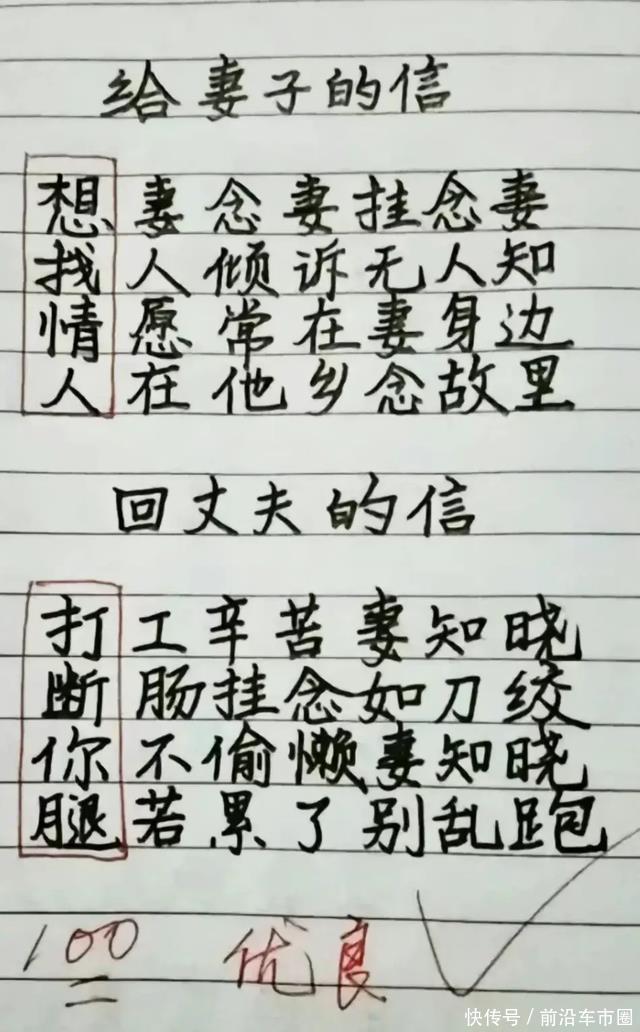 给妻子的信
想妻念妻挂念妻
找人倾诉无人知
情愿常在妻身边
人在他乡念故里
回丈夫的信
打工辛苦妻知晓
断肠挂念如刀绞
你不偷懒妻知晓
腿若累了别乱跑
100
优良
快传号/前沿车市圈